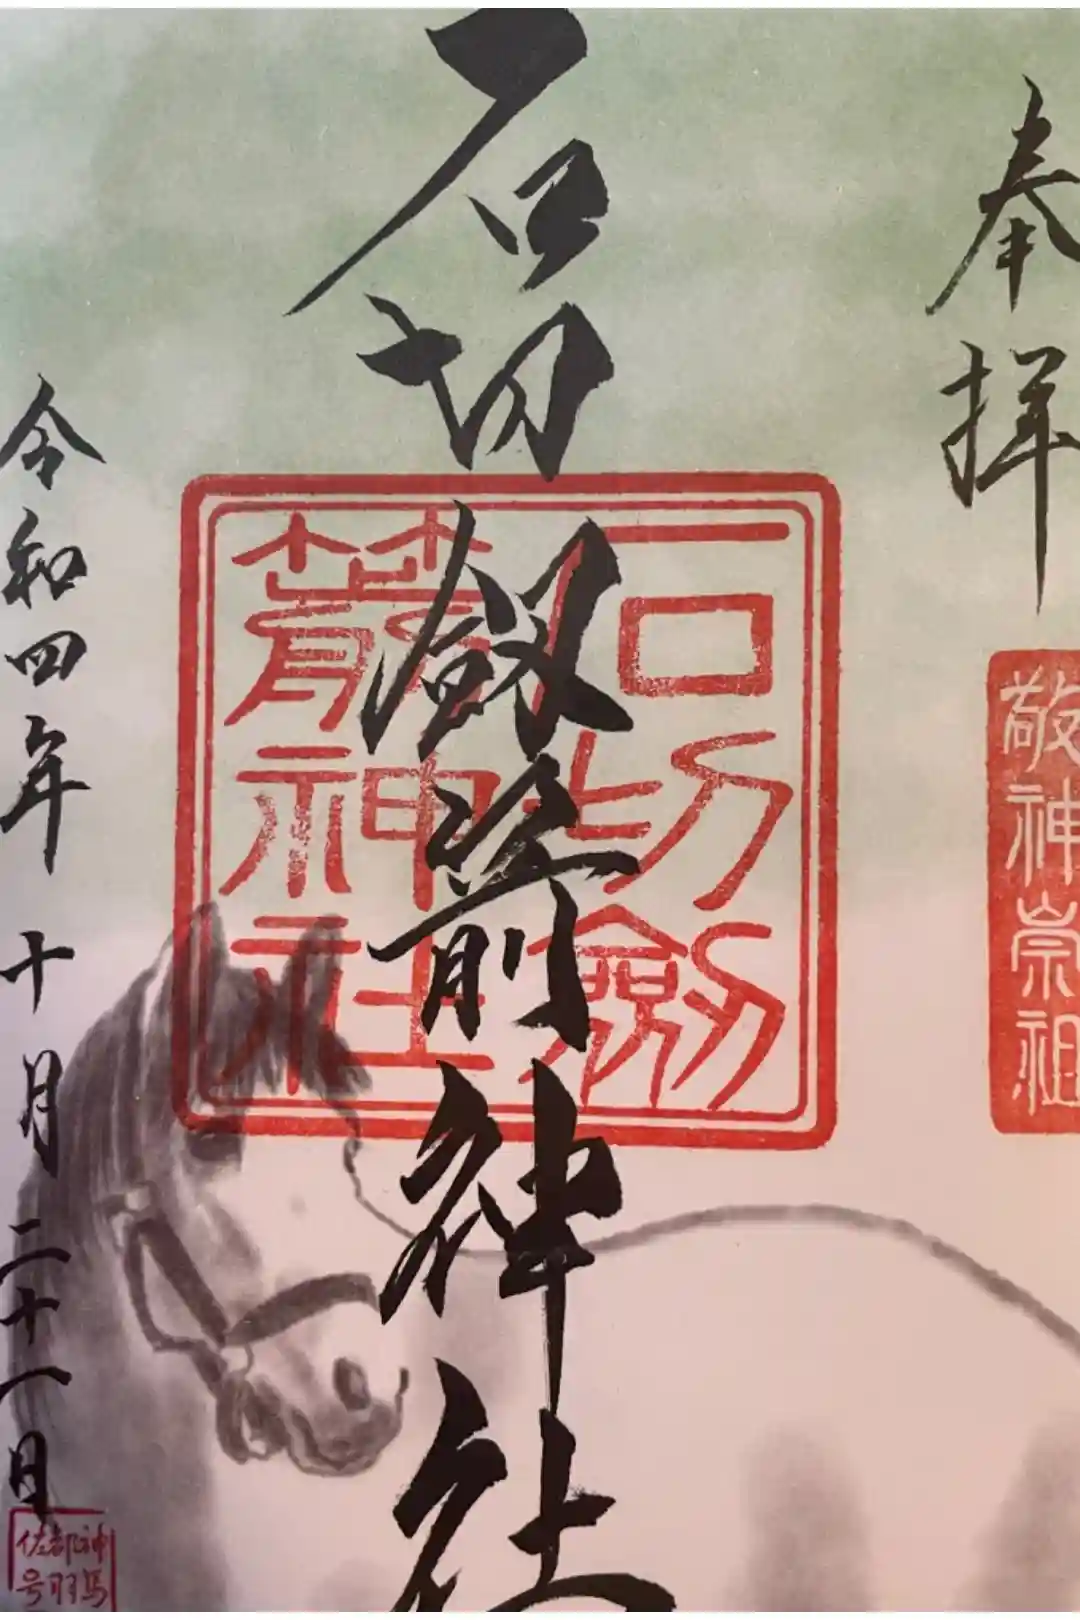 奉拝
敬神崇祖
石切劔箭神社
石切劔
箭神社
令和四年 十月二十一日
神馬
都羽
佐号